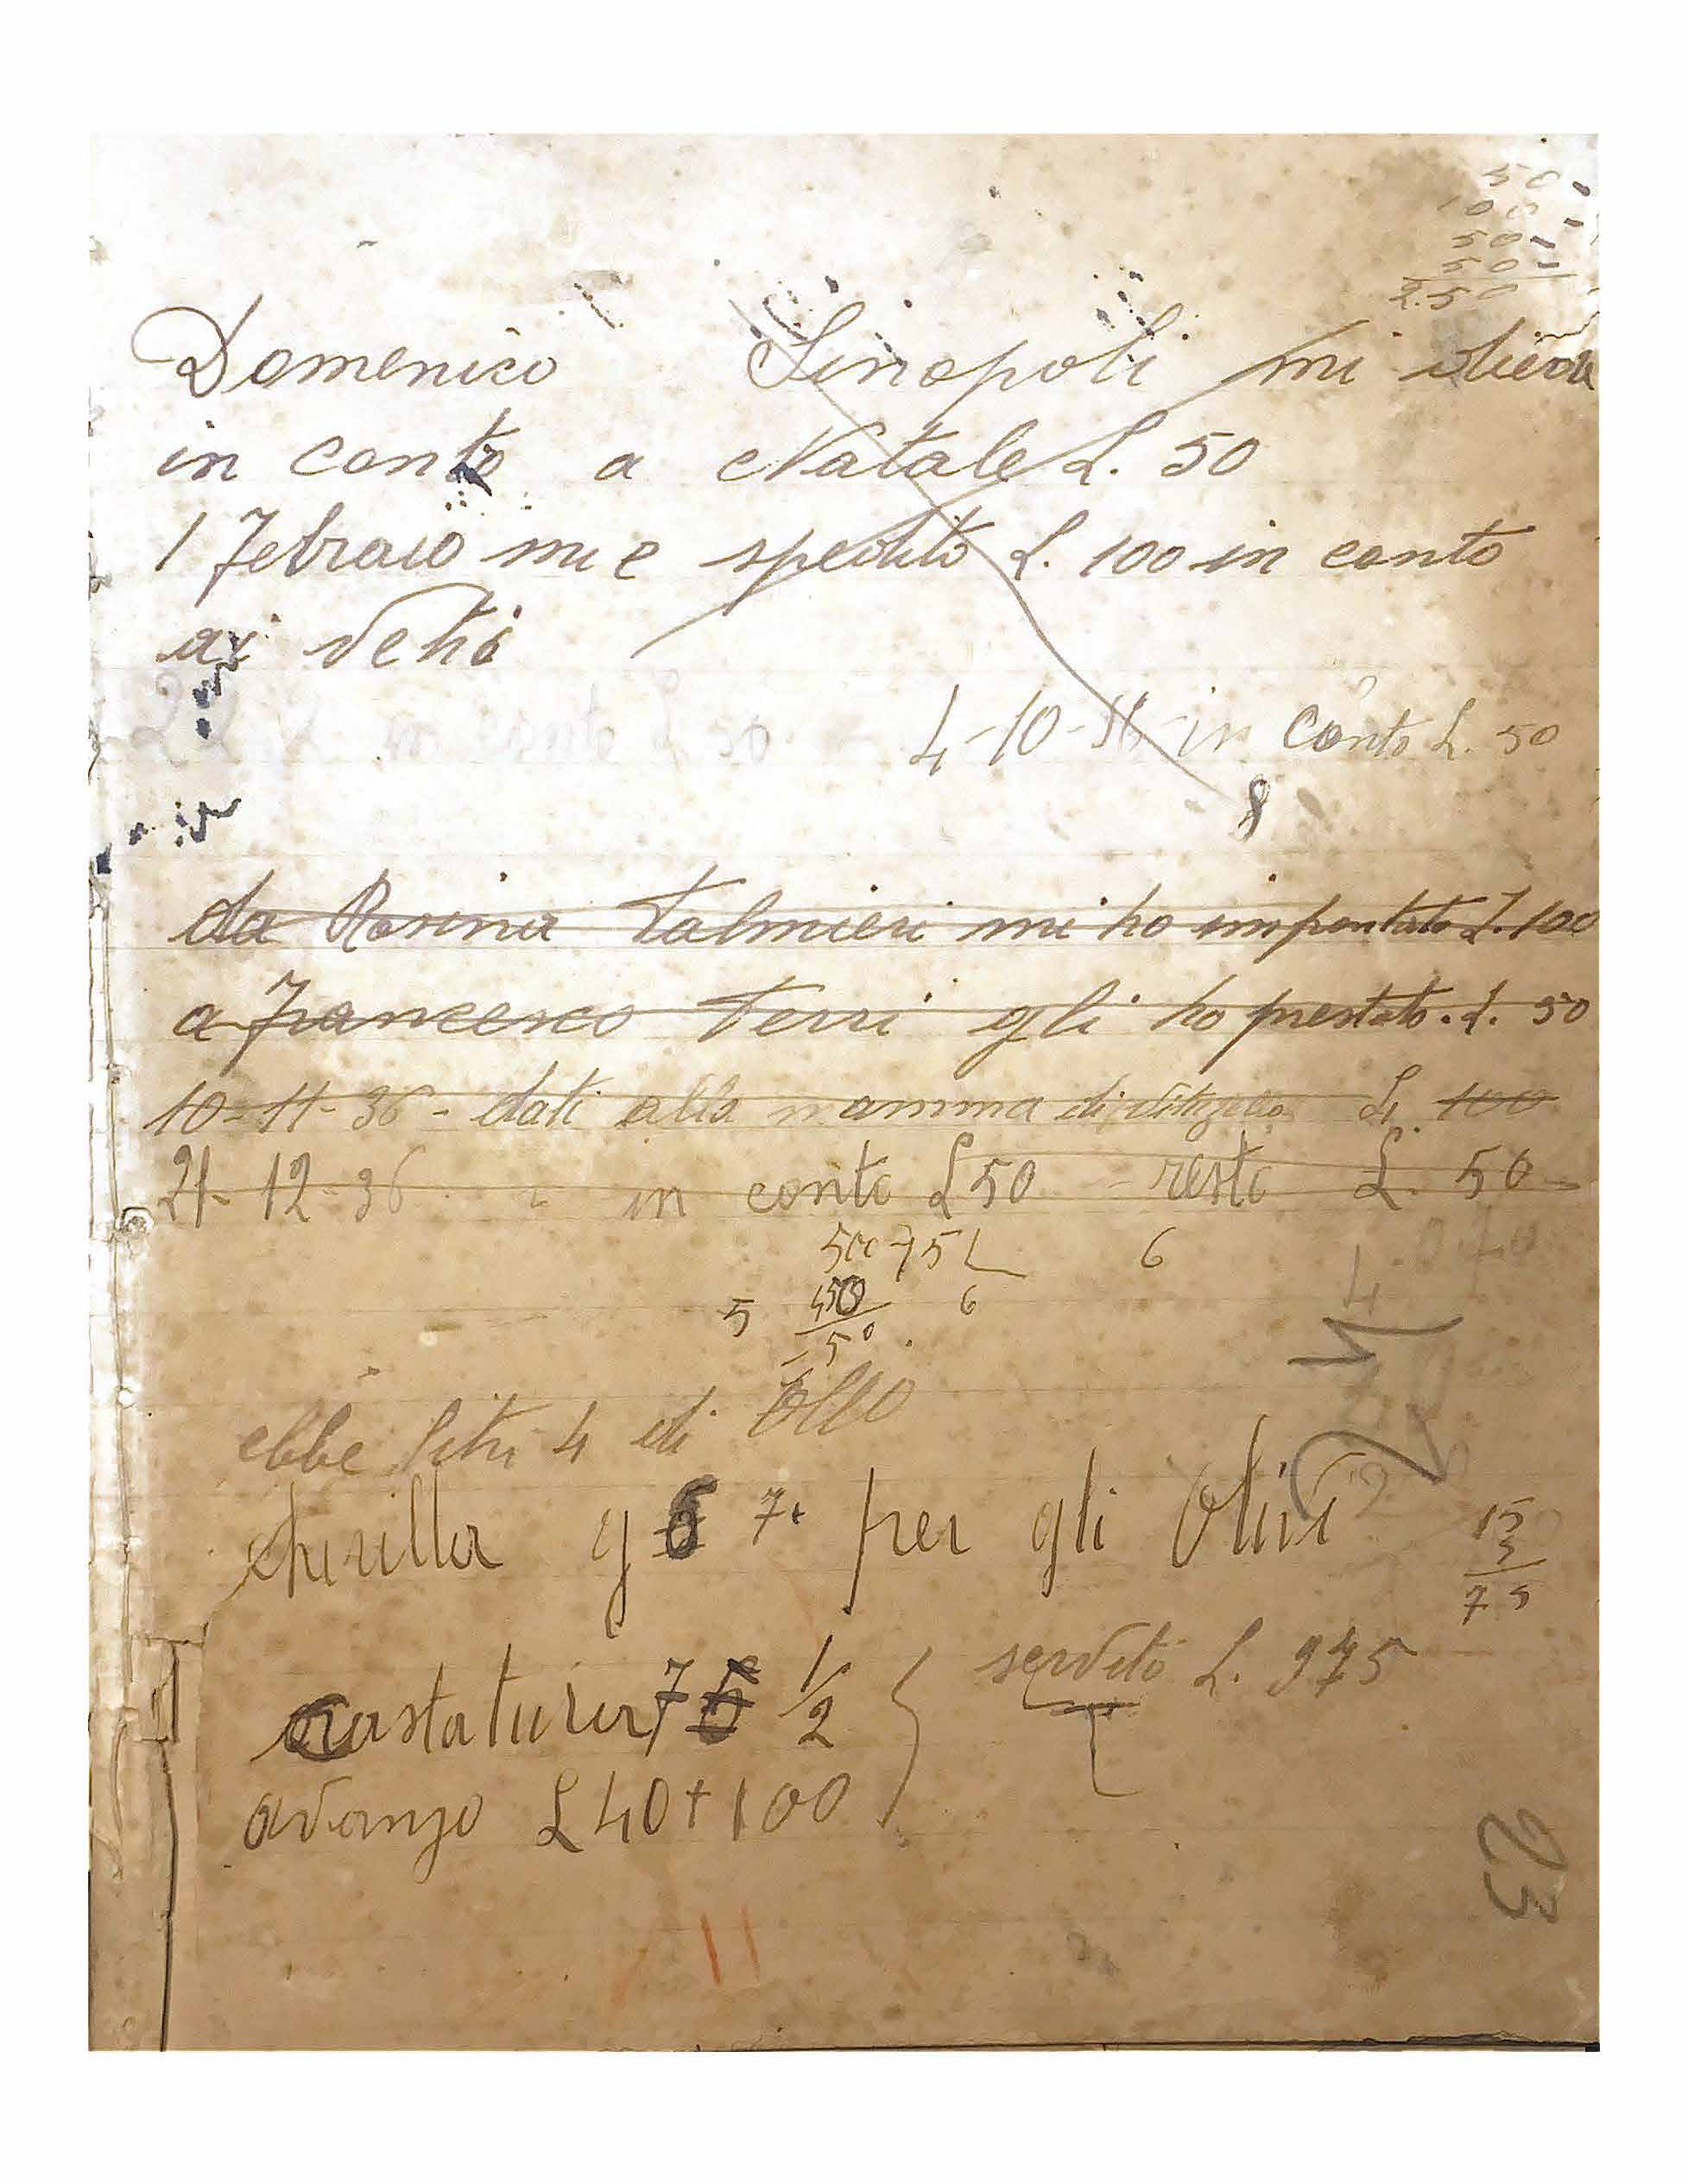 50 -
100 -
50 -
50 -
250
Domenico Sinopoli mi diede
in conto a Natale L. 50
1 Febraio mi e spedito L. 100 in conto
ai vetri
in conto L 50
4-10-36 in Conto L. 50
8
da Rosina Palmieri mi ho impontato L. 100
a Francesco Ferri gli ho prestato. L. 50
10-11-36 - dati alla mamma di L. 100
21-12-36 in conto L 50 - resto L. 50
500 75 6
5 450 6
50
ebbe litri 4 di Ollo
chirilla 7 per gli Olivi
15
5
75
castatura 7 1/2
servito L. 975
avanzo L 40+100
23